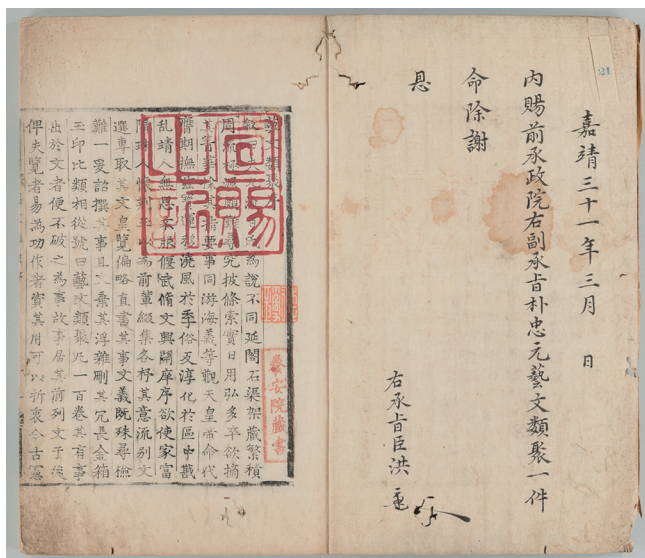 嘉靖三十一年三月 日
內賜前承政院右副承旨朴忠元藝文類聚一件
命除謝
恩
右承旨臣洪
宣賜之記
養安院藏書
藝文類聚序
為說不同延閣石渠架藏繁積
周流極源頗難尋究披條索實日用弘多卒欲摘
其菁華採其指要事同游海義等觀天皇帝命代
膺期撫茲寶運移澆風於季俗反淳化於區中戡
亂靖人無思不服偃武脩文興開庠序欲使家富
隋珠人懷荊玉以為前輩綴集各杼其意流別文
選專取其文皇覽偏略直書其事文義既殊尋檢
難一爰詔撰其事且文棄其浮雜刪其冗長金箱
玉印比類相從號曰藝文類聚凡一百卷其有事
出於文者便不破之為事故事居其前列文于後
俾夫覽者易為功作者資其用可以折衷今古憲